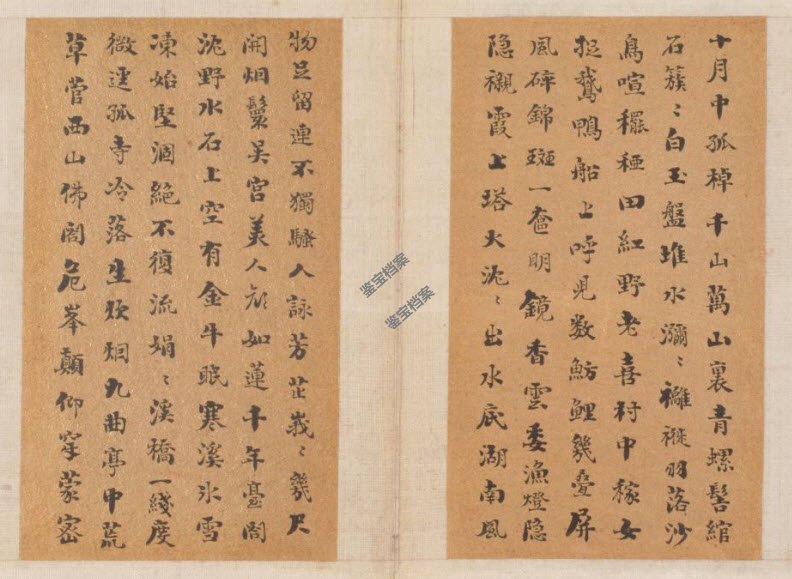 十月中孤棹千山萬山裏青螺髻綰
石簇〻白玉盤堆水瀰〻褵褷羽落沙
鳥喧䆉稏田紅野老喜村中稼女
捉鵝鴨船上呼兒数魴鯉幾疊屏
風碎錦斑一奩明鏡香雲委漁燈隐
隐襯霞上塔火沈〻出水底湖南風
物足留連不獨騷人詠芳芷峩〻幾尺
開烟鬟吴宫美人顔如蓮千年臺閣
沈野水石上空有金牛眠寒溪氷雪
凍始堅涸絕不復流娟〻溪橋一綫度
微逕孤寺冷落生炊烟九曲亭中荒
草菅西山佛閣危峯顛仰穿蒙密
鉴宝档案
鉴宝档案